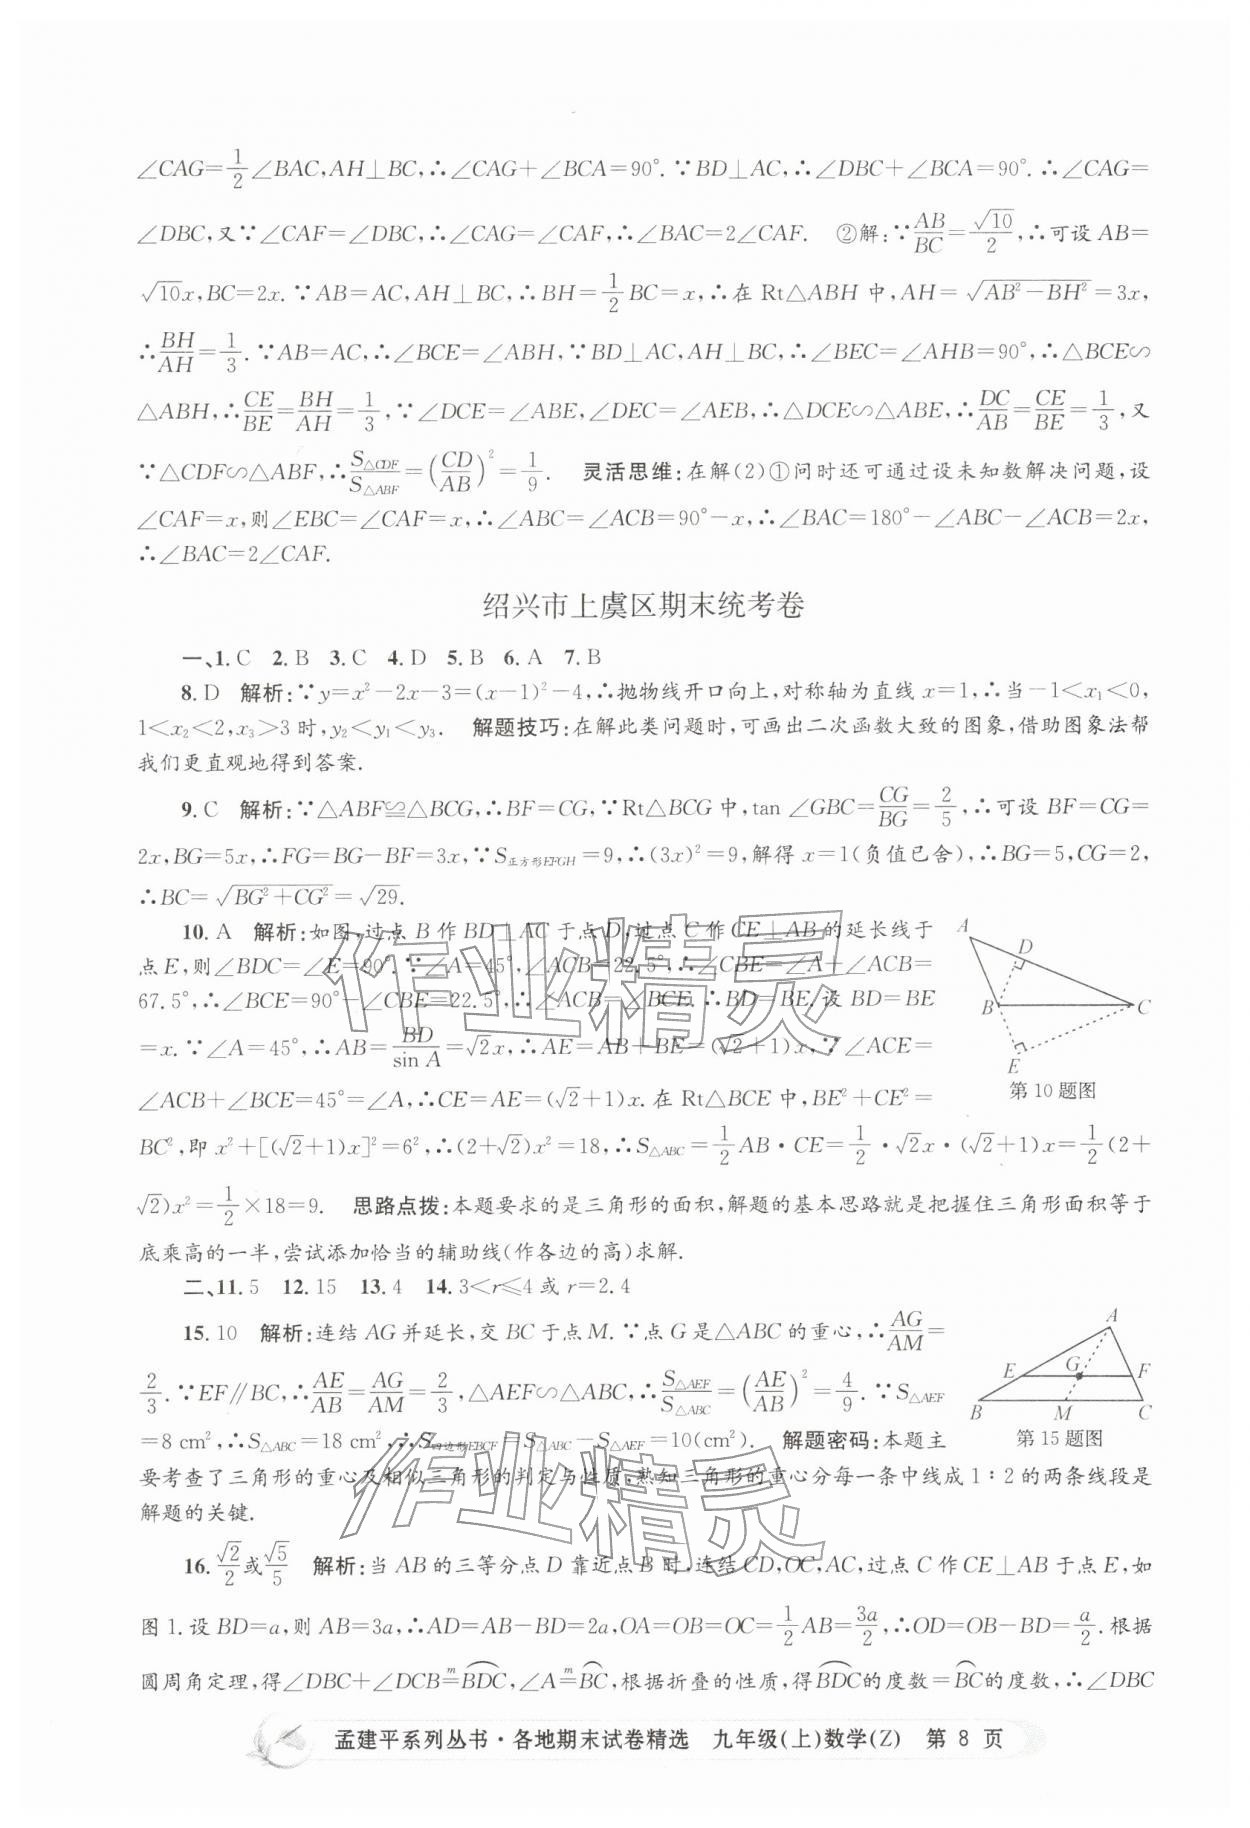 ∠CAG=1/2∠BAC,AH⊥BC,∴∠CAG+∠BCA=90°.∵BD⊥AC,∴∠DBC+∠BCA=90°.∴∠CAG=
∠DBC,又∵∠CAF=∠DBC,∴∠CAG=∠CAF,∴∠BAC=2∠CAF. ②解:∵AB/BC=√10/2,∴可设AB=
√10x,BC=2x.∵AB=AC,AH⊥BC,∴BH=1/2BC=x,∴在Rt△ABH中,AH=√(AB²-BH²)=3x,
∴BH/AH=1/3.∵AB=AC,∴∠BCE=∠ABH,∵BD⊥AC,AH⊥BC,∴∠BEC=∠AHB=90°,∴△BCE∽
△ABH,∴CE/BE=BH/AH=1/3,∵∠DCE=∠ABE,∠DEC=∠AEB,∴△DCE∽△ABE,∴DC/AB=CE/BE=1/3,又
∵△CDF∽△ABF,∴S△CDF/S△ABF=(CD/AB)²=1/9. 灵活思维:在解(2)①问时还可通过设未知数解决问题,设
∠CAF=x,则∠EBC=∠CAF=x,∴∠ABC=∠ACB=90°-x,∴∠BAC=180°-∠ABC-∠ACB=2x,
∴∠BAC=2∠CAF.
绍兴市上虞区期末统考卷
一、1.C 2.B 3.C 4.D 5.B 6.A 7.B
8.D 解析:∵y=x²-2x-3=(x-1)²-4,∴抛物线开口向上,对称轴为直线x=1,∴当-1<x₁<0,
1<x₂<2,x₃>3时,y₂<y₁<y₃. 解题技巧:在解此类问题时,可画出二次函数大致的图象,借助图象法帮
我们更直观地得到答案.
9.C 解析:∵△ABF≌△BCG,∴BF=CG,∵Rt△BCG中,tan∠GBC=CG/BG=2/5,∴可设BF=CG=
2x,BG=5x,∴FG=BG-BF=3x,∵S正方形EFGH=9,∴(3x)²=9,解得x=1(负值已舍),∴BG=5,CG=2,
∴BC=√(BG²+CG²)=√29.
10.A 解析:如图,过点B作BD⊥AC于点D,过点C作CE⊥AB的延长线于
点E,则∠BDC=∠E=90°.∵∠A=45°,∠ACB=22.5°,∴∠CBE=∠A+∠ACB=
67.5°,∴∠BCE=90°-∠CBE=22.5°,∴∠ACB=∠BCE.∴BD=BE.设BD=BE
=x.∵∠A=45°,∴AB=BD/sin A=√2x,∴AE=AB+BE=(√2+1)x,∵∠ACE=
∠ACB+∠BCE=45°=∠A,∴CE=AE=(√2+1)x.在Rt△BCE中,BE²+CE²=
BC²,即x²+[(√2+1)x]²=6²,∴(2+√2)x²=18,∴S△ABC=1/2AB·CE=1/2·√2x·(√2+1)x=1/2(2+
√2)x²=1/2×18=9. 思路点拨:本题要求的是三角形的面积,解题的基本思路就是把握住三角形面积等于
底乘高的一半,尝试添加恰当的辅助线(作各边的高)求解.
A
D
B
C
E
第10题图
二、11.5 12.15 13.4 14.3<r≤4或r=2.4
15.10 解析:连结AG并延长,交BC于点M.∵点G是△ABC的重心,∴AG/AM=
2/3.∵EF∥BC,∴AE/AB=AG/AM=2/3,△AEF∽△ABC,∴S△AEF/S△ABC=(AE/AB)²=4/9.∵S△AEF
=8 cm²,∴S△ABC=18 cm²,∴S四边形EBCF=S△ABC-S△AEF=10(cm²). 解题密码:本题主
要考查了三角形的重心及相似三角形的判定与性质,熟知三角形的重心分每一条中线成1∶2的两条线段是
解题的关键.
A
E
G
F
B
M
C
第15题图
16.√2/2或√5/5 解析:当AB的三等分点D靠近点B时,连结CD,OC,AC,过点C作CE⊥AB于点E,如
图1.设BD=a,则AB=3a,∴AD=AB-BD=2a,OA=OB=OC=1/2AB=3a/2,∴OD=OB-BD=a/2.根据
圆周角定理,得∠DBC+∠DCB=ᵐBDC⌒,∠A=ᵐBC⌒,根据折叠的性质,得BDC⌒的度数=BC⌒的度数,∴∠DBC
孟建平系列丛书·各地期末试卷精选 九年级(上)数学(Z) 第8页
作业精灵
作业精灵